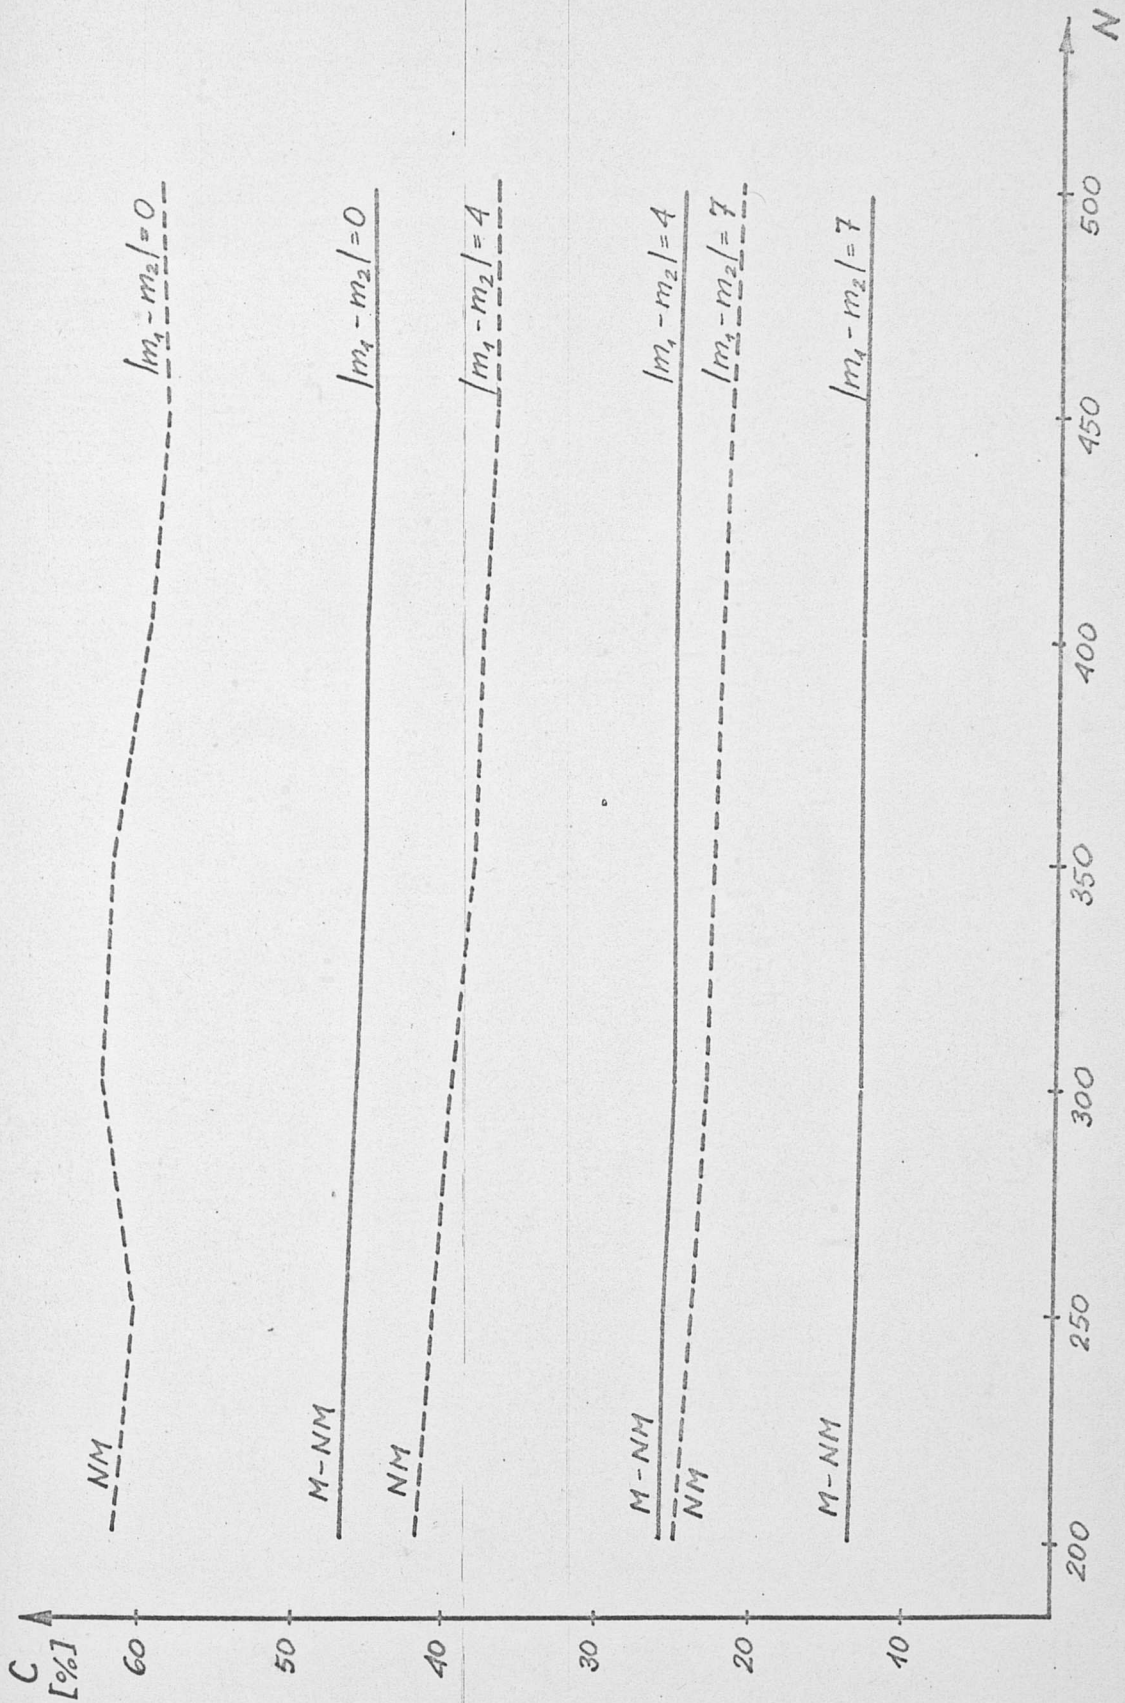 C
[%]
60
50
40
30
20
10
NM
|m₁ - m₂| = 0
M-NM
|m₁ - m₂| = 0
NM
|m₁ - m₂| = 4
M-NM
|m₁ - m₂| = 4
NM
|m₁ - m₂| = 7
M-NM
|m₁ - m₂| = 7
200
250
300
350
400
450
500
N